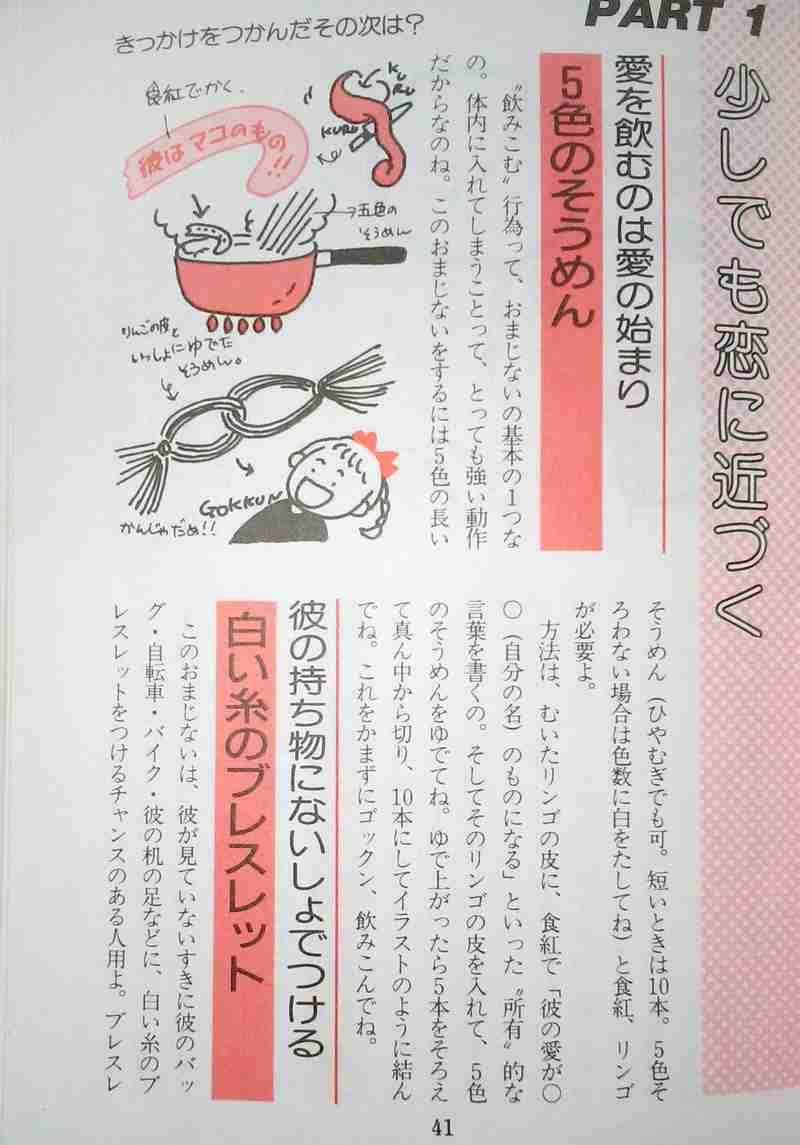 PART 1
少しでも恋に近づく
きっかけをつかんだその次は?
愛を飲むのは愛の始まり
5色のそうめん
〝飲みこむ〟行為って、おまじないの基本の1つな
の。体内に入れてしまうことって、とっても強い動作
だからなのね。このおまじないをするには5色の長い
食紅でかく、
彼はマコのもの!!
KURU
KURU
五色の
そうめん
りんごの皮と
いっしょにゆでた
そうめん。
GOKKUN
かんじゃだめ!!
そうめん(ひやむぎでも可。短いときは10本。5色そ
ろわない場合は色数に白をたしてね)と食紅、リンゴ
が必要よ。
方法は、むいたリンゴの皮に、食紅で「彼の愛が〇
〇(自分の名)のものになる」といった〝所有〟的な
言葉を書くの。そしてそのリンゴの皮を入れて、5色
のそうめんをゆでてね。ゆで上がったら5本をそろえ
て真ん中から切り、10本にしてイラストのように結ん
でね。これをかまずにゴックン、飲みこんでね。
彼の持ち物にないしょでつける
白い糸のブレスレット
このおまじないは、彼が見ていないすきに彼のバッ
グ・自転車・バイク・彼の机の足などに、白い糸のブ
レスレットをつけるチャンスのある人用よ。ブレスレ
41